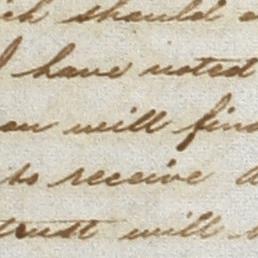 ch should
I have noted
ou will find
to receive
trust will